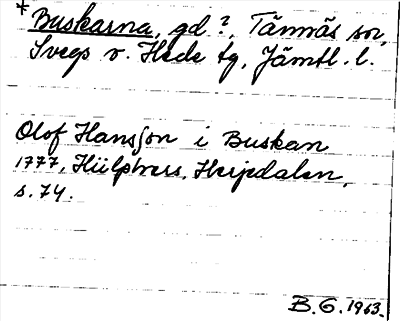 * Buskarna, gd?, Tännäs sn,
Svegs o. Hede tg, Jämtl. l.
Olof Hansson i Buskan
1777, Hülphers, Herjedalen,
s. 74.
B.G. 1963.